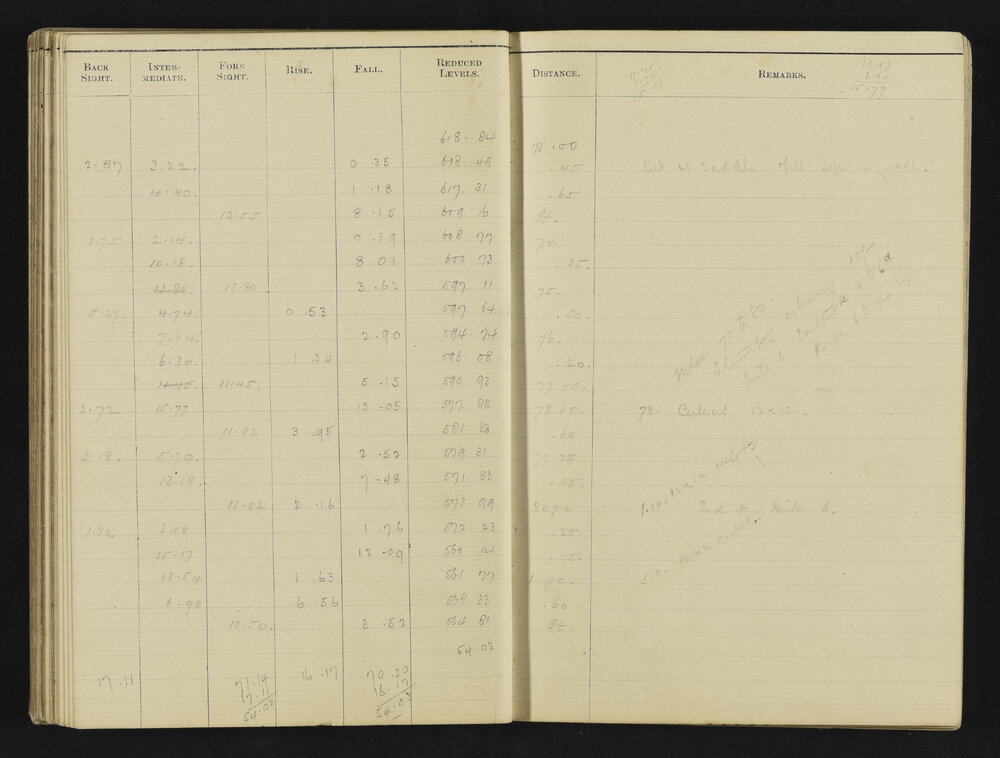 BACK SIGHT. INTER-MEDIATE. FORE SIGHT. RISE. FALL. REDUCED LEVELS. DISTANCE. REMARKS.
11.45. 13.07
15.17 2.60
15.77
618.84
73.00
2.87 3.22. 0.35 618.49 .45 Cut at Saddle
4.40. 1.18 617.31 .65
12.55 8.15 609.16
1.75 2.14. 0.39 608.77 74.
10.18. 8.04 600.73 .35.
13.80 13.80 3.62 597.11 75.
5.27. 4.74. 0.53 597.64 .50.
7.64. 2.90 594.74 76.
6.30. 1.34 596.08 .20.
11.45. 11.45. 5.15 590.93 77.00.
2.72 15.77 13.05 577.88 78.00. 78. Culvert 12 x 12.
11.82 3.95 581.83 .60
3.18. 5.70. 2.52 579.31 79.28
13.18. 7.48 571.83 .85.
11.02 2.16 573.99 80.00 End of Mile 6.
1.32 3.08 1.76 572.23 .25.
15.17 12.09 560.14 .75.
13.54 1.63 561.77 1.00.
6.98 6.56 568.33 .60.
10.50. 3.52 564.81
54.03
17.11 71.14 16.17 70.20
17.11 16.17
54.03 54.03
Miles 70 to 80.
Mile 6.
1.00. 12 x 12 culvert
5.8. 12 x 12 culvert